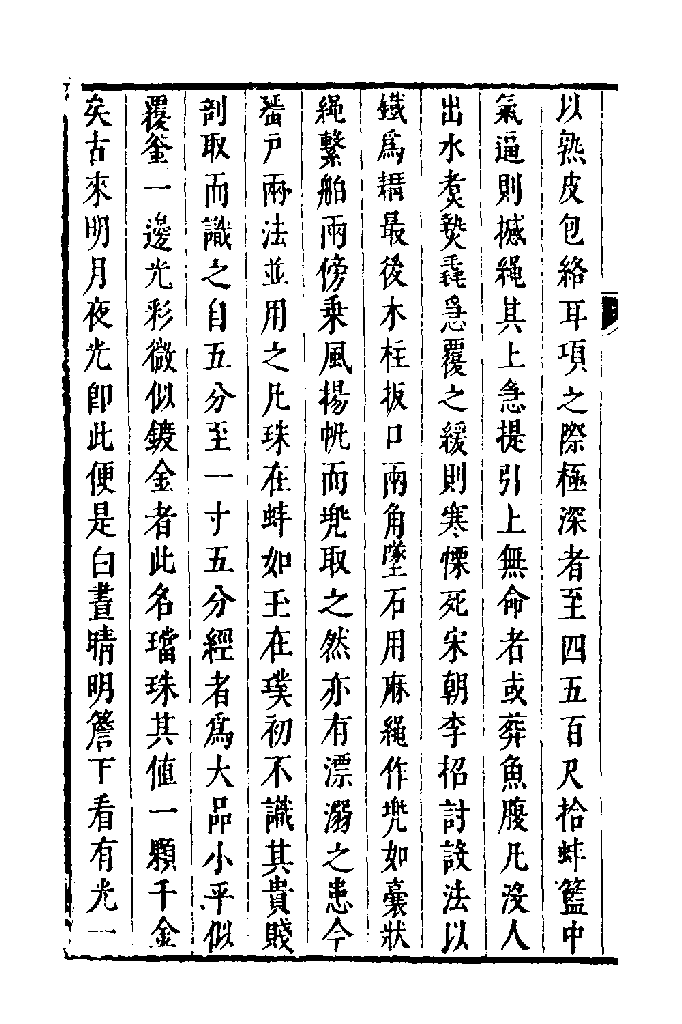 以熟皮包絡耳項之際極深者至四五百尺拾蚌籃中
氣逼則撼繩其上急提引上無命者或葬魚腹凡沒人
出水煮熱毳急覆之緩則寒慄死宋朝李招討設法以
鐵為耩最後木柱扳口兩角墜石用麻繩作兠如囊狀
繩繫舶兩傍乗風揚帆而兠取之然亦有漂溺之患今
蜑戶兩法並用之凡珠在蚌如玉在璞初不識其貴賤
剖取而識之自五分至一寸五分經者爲大品小平似
覆釜一邊光彩微似鍍金者此名璫珠其值一顆千金
矣古來明月夜光即此便是白晝晴明簷下看有光一